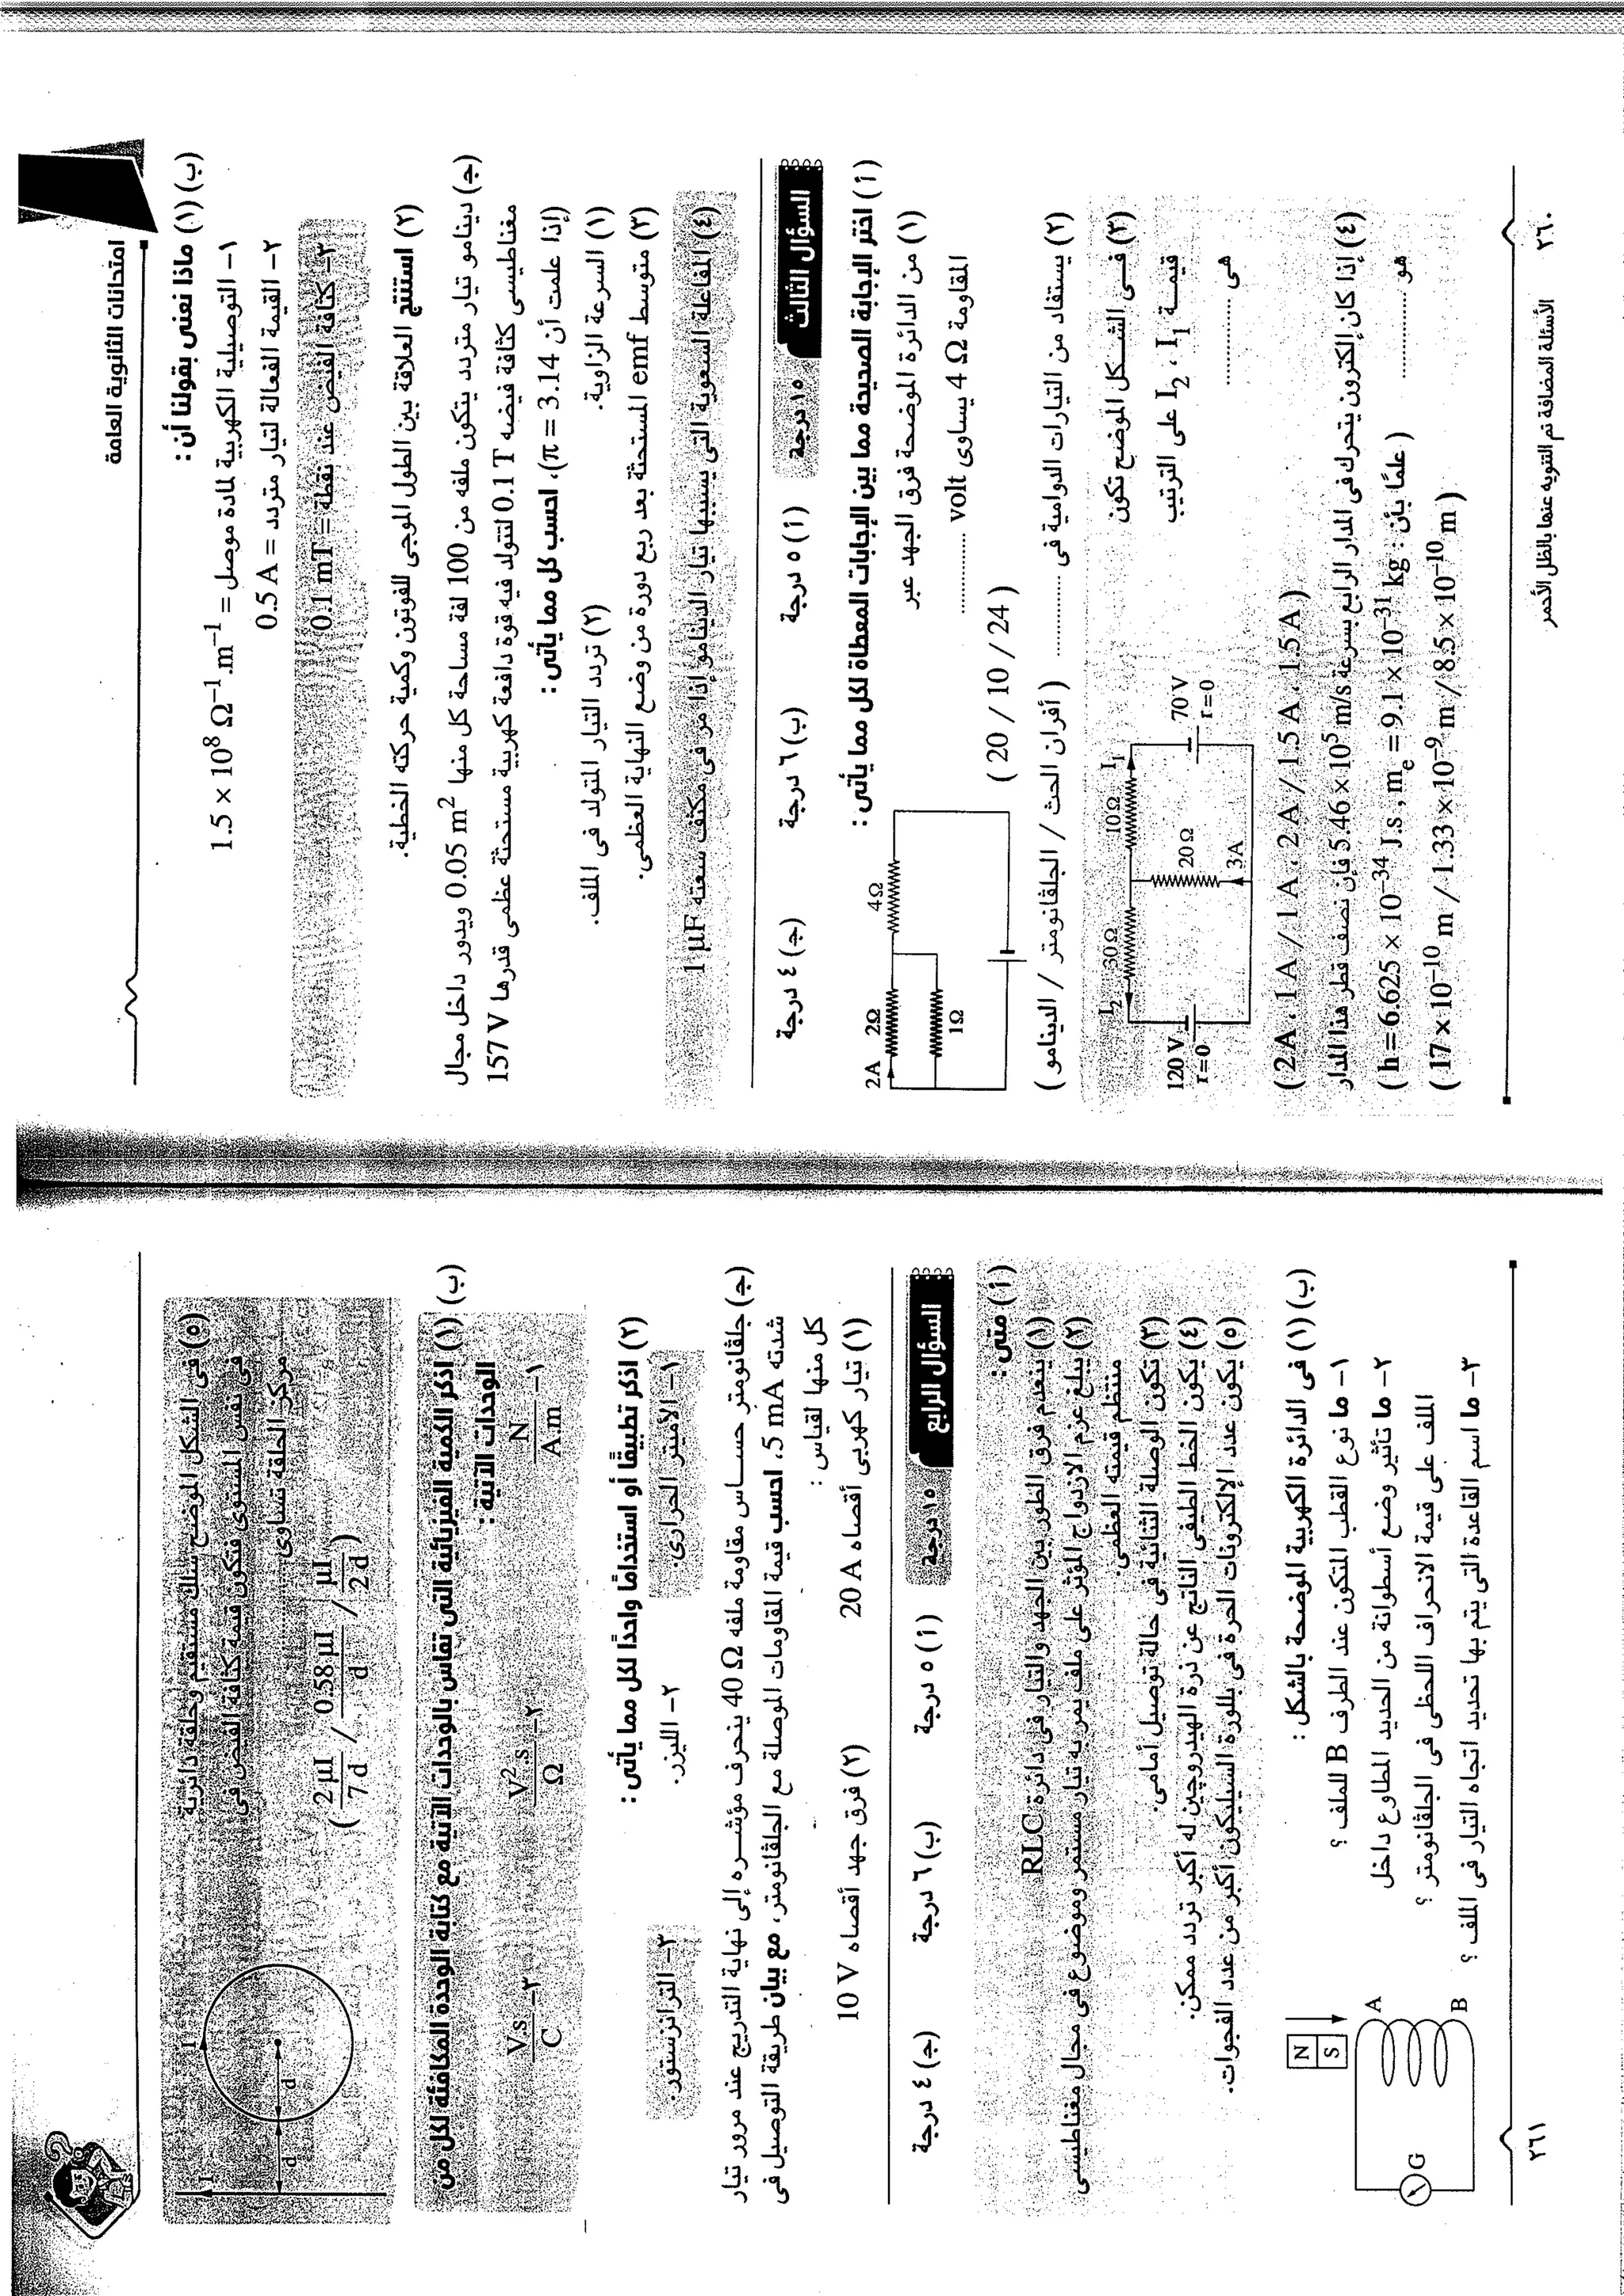 امتحانات الثانوية العامة
(ب) (١) ماذا نعنى بقولنا أن :
١- التوصيلية الكهربية لمادة موصل = 1.5 × 10⁸ Ω⁻¹.m⁻¹
٢- القيمة الفعالة لتيار متردد = 0.5 A
٣- كثافة الفيض عند نقطة = 0.1 mT
(٢) استنتج العلاقة بين الطول الموجى للفوتون وكمية حركته الخطية.
(جـ) دينامو تيار متردد يتكون ملفه من 100 لفة مساحة كل منها 0.05 m² ويدور داخل مجال
مغناطيسى كثافة فيضه 0.1 T لتتولد فيه قوة دافعة كهربية مستحثة عظمى قدرها 157 V
(إذا علمت أن π = 3.14)، احسب كل مما يأتى :
(١) السرعة الزاوية.
(٢) تردد التيار المتولد فى الملف.
(٣) متوسط emf المستحثة بعد ربع دورة من وضع النهاية العظمى.
(٤) المفاعلة السعوية التى يسببها تيار الدينامو إذا مر فى مكثف سعته 1 μF
السؤال الثالث
١٥ درجة
(أ) ٥ درجة
(ب) ٦ درجة
(جـ) ٤ درجة
(أ) اختر الإجابة الصحيحة مما بين الإجابات المعطاة لكل مما يأتى :
(١) من الدائرة الموضحة فرق الجهد عبر
المقاومة 4 Ω يساوى ............ volt
( 20 / 10 / 24 )
2A 2Ω 4Ω
1Ω
(٢) يستفاد من التيارات الدوامية فى ............ ( أفران الحث / الجلفانومتر / الدينامو )
(٣) فى الشكل الموضح تكون
قيمة I₁ ، I₂ على الترتيب
هى ............
I₂ 30Ω 10Ω I₁
120 V r=0
20Ω
3A
70 V r=0
( 2A ، 1A / 1A ، 2A / 1.5A ، 1.5A )
(٤) إذا كان إلكترون يتحرك فى المدار الرابع بسرعة 5.46 × 10⁵ m/s فإن نصف قطر هذا المدار
هو ............ ( علمًا بأن : h = 6.625 × 10⁻³⁴ J.s , mₑ = 9.1 × 10⁻³¹ kg )
( 17 × 10⁻¹⁰ m / 1.33 × 10⁻⁹ m / 8.5 × 10⁻¹⁰ m )
٢٦٠
الأسئلة المضافة تم التنويه عنها بالظل الأحمر
(٥) فى الشكل الموضح سلك مستقيم وحلقة دائرية
فى نفس المستوى فتكون قيمة كثافة الفيض فى
مركز الحلقة تساوى ............
( 2μI/7d / 0.58μI/d / μI/2d )
I I
d d
(ب) (١) اذكر الكمية الفيزيائية التى تقاس بالوحدات الآتية مع كتابة الوحدة المكافئة لكل من
الوحدات الآتية :
١- N/A.m
٢- V².s/Ω
٣- V.s/C
(٢) اذكر تطبيقًا أو استخدامًا واحدًا لكل مما يأتى :
١- الأميتر الحرارى.
٢- الليزر.
٣- الترانزستور.
(جـ) جلفانومتر حساس مقاومة ملفه 40 Ω ينحرف مؤشره إلى نهاية التدريج عند مرور تيار
شدته 5 mA، احسب قيمة المقاومات الموصلة مع الجلفانومتر، مع بيان طريقة التوصيل فى
كل منها لقياس :
(١) تيار كهربى أقصاه 20 A
(٢) فرق جهد أقصاه 10 V
السؤال الرابع
١٥ درجة
(أ) ٥ درجة
(ب) ٦ درجة
(جـ) ٤ درجة
(أ) متى :
(١) ينعدم فرق الطور بين الجهد والتيار فى دائرة RLC
(٢) يبلغ عزم الازدواج المؤثر على ملف يمر به تيار مستمر وموضوع فى مجال مغناطيسى
منتظم قيمته العظمى.
(٣) تكون الوصلة الثنائية فى حالة توصيل أمامى.
(٤) يكون الخط الطيفى الناتج عن ذرة الهيدروچين له أكبر تردد ممكن.
(٥) يكون عدد الإلكترونات الحرة فى بللورة السيليكون أكبر من عدد الفجوات.
(ب) (١) فى الدائرة الكهربية الموضحة بالشكل :
١- ما نوع القطب المتكون عند الطرف B للملف ؟
٢- ما تأثير وضع أسطوانة من الحديد المطاوع داخل
الملف على قيمة الانحراف اللحظى فى الجلفانومتر ؟
٣- ما اسم القاعدة التى يتم بها تحديد اتجاه التيار فى الملف ؟
N
S
A
B
G
٢٦١